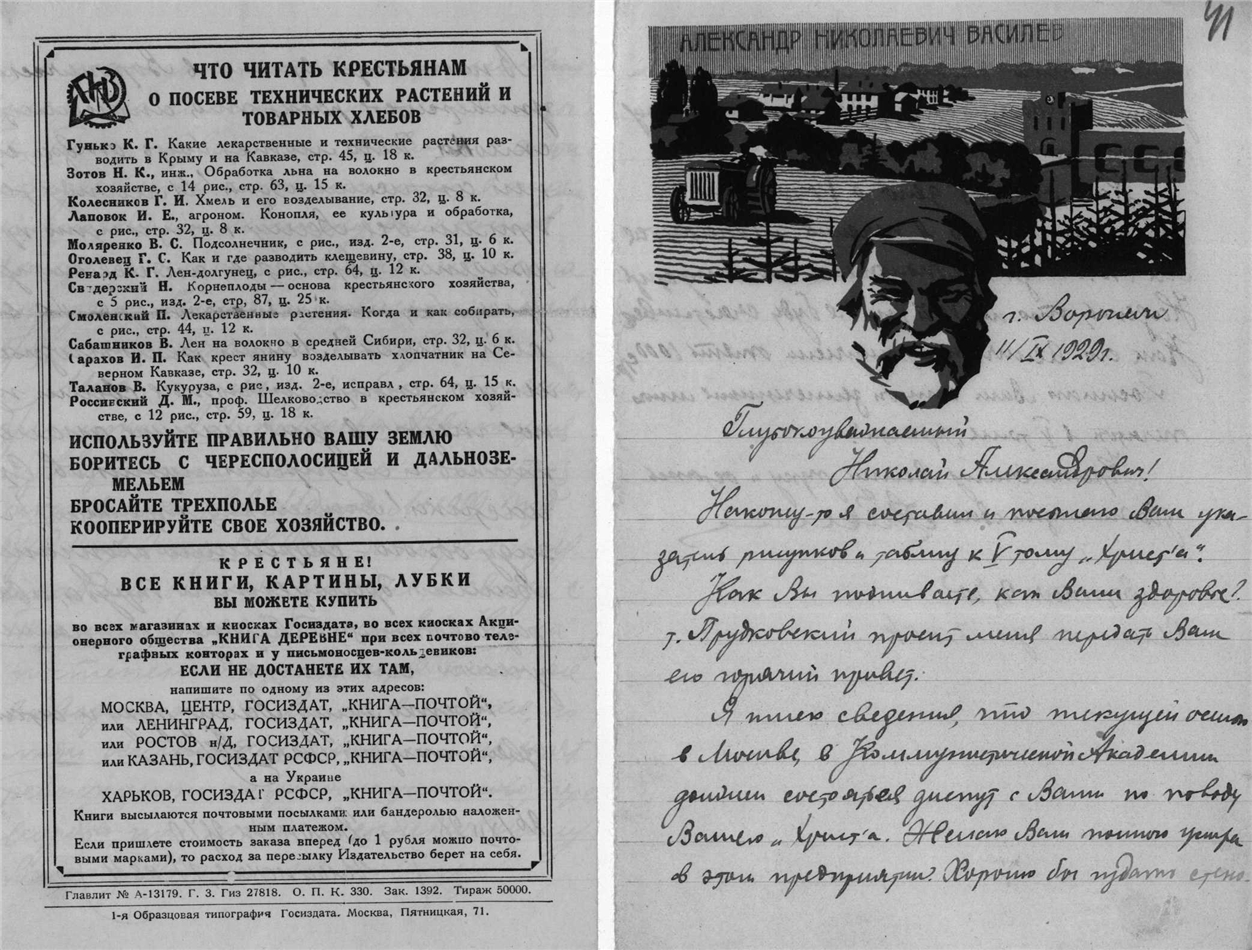 ГИЗ
ЧТО ЧИТАТЬ КРЕСТЬЯНАМ
О ПОСЕВЕ ТЕХНИЧЕСКИХ РАСТЕНИЙ И
ТОВАРНЫХ ХЛЕБОВ
Гунькэ К. Г. Какие лекарственные и технические растения раз-
водить в Крыму и на Кавказе, стр. 45, ц. 18 к.
Зотов Н. К., инж., Обработка льна на волокно в крестьянском
хозяйстве, с 14 рис., стр. 63, ц. 15 к.
Колесников Г. И. Хмель и его возделывание, стр. 32, ц. 8 к.
Лаповок И. Е., агроном. Конопля, ее культура и обработка,
с рис., стр. 32, ц. 8 к.
Моляренко В. С. Подсолнечник, с рис., изд. 2-е, стр. 31, ц. 6 к.
Оголевец Г. С. Как и где разводить клещевину, стр. 38, ц. 10 к.
Ренард К. Г. Лен-долгунец, с рис., стр. 64, ц. 12 к.
Свидерский Н. Корнеплоды—основа крестьянского хозяйства,
с 5 рис., изд. 2-е, стр, 87, ц. 25 к.
Смоленский П. Лекарственные растения. Когда и как собирать,
с рис., стр. 44, ц. 12 к.
Сабашников В. Лен на волокно в средней Сибири, стр. 32, ц. 6 к.
Сарахов И. П. Как крестянину возделывать хлопчатник на Се-
верном Кавказе, стр. 32, ц. 10 к.
Таланов В. Кукуруза, с рис, изд. 2-е, исправл, стр. 64, ц. 15 к.
Россинский Д. М., проф. Шелководство в крестьянском хозяй-
стве, с 12 рис., стр. 59, ц. 18 к.
ИСПОЛЬЗУЙТЕ ПРАВИЛЬНО ВАШУ ЗЕМЛЮ
БОРИТЕСЬ С ЧЕРЕСПОЛОСИЦЕЙ И ДАЛЬНОЗЕ-
МЕЛЬЕМ
БРОСАЙТЕ ТРЕХПОЛЬЕ
КООПЕРИРУЙТЕ СВОЕ ХОЗЯЙСТВО.
КРЕСТЬЯНЕ!
ВСЕ КНИГИ, КАРТИНЫ, ЛУБКИ
ВЫ МОЖЕТЕ КУПИТЬ
во всех магазинах и киосках Госиздата, во всех киосках Акци-
онерного общества „КНИГА ДЕРЕВНЕ" при всех почтово теле-
графных конторах и у письмоносцев-кольцевиков:
ЕСЛИ НЕ ДОСТАНЕТЕ ИХ ТАМ,
напишите по одному из этих адресов:
МОСКВА, ЦЕНТР, ГОСИЗДАТ, „КНИГА—ПОЧТОЙ",
или ЛЕНИНГРАД, ГОСИЗДАТ, „КНИГА—ПОЧТОЙ",
или РОСТОВ н/Д, ГОСИЗДАТ, „КНИГА—ПОЧТОЙ",
или КАЗАНЬ, ГОСИЗДАТ РСФСР, „КНИГА—ПОЧТОЙ",
а на Украине
ХАРЬКОВ, ГОСИЗДАТ РСФСР, „КНИГА—ПОЧТОЙ".
Книги высылаются почтовыми посылками или бандеролью наложен-
ным платежом.
Если пришлете стоимость заказа вперед (до 1 рубля можно почто-
выми марками), то расход за пересылку Издательство берет на себя.
Главлит № А-13179. Г. 3. Гиз 27818. О. П. К. 330. Зак. 1392. Тираж 50000.
1-я Образцовая типография Госиздата. Москва, Пятницкая, 71.
41
АЛЕКСАНДР НИКОЛАЕВИЧ ВАСИЛЕВ
г. Воронеж
11/IX 1929г.
Глубокоуважаемый
Николай Александрович!
Наконец-то я составил и посылаю Вам ука-
затель рисунков и таблиц к V тому „Христ'а".
Как Вы поживаете, как Ваше здоровье?
т. Прудковский просит меня передать Вам
его горячий привет.
Я имею сведения, что текущей осенью
в Москве, в Коммунистической Академии
должен состояться диспут с Вами по поводу
Вашего „Христ'а. Желаю Вам полного успеха
в этом предприятии. Хорошо бы издать стено-